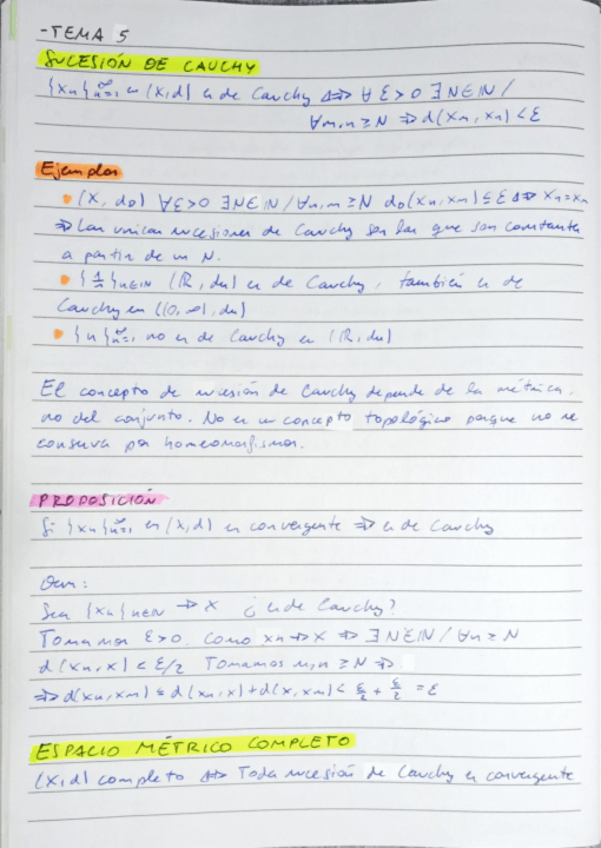 - TEMA 5
SUCESIÓN DE CAUCHY
{xn}∞n=1 en (X,d) es de Cauchy ⇔ ∀ ε > 0 ∃ N ∈ ℕ /
∀m,n ≥ N ⇒ d(xm, xn) < ε
Ejemplos
• (X, d0) ∀ε>0 ∃N∈ℕ / ∀n,m ≥ N d0(xn, xm) ≤ ε ⇔ xn = xm
⇒ Las únicas sucesiones de Cauchy son las que son constantes
a partir de un N.
• {1/n}n∈ℕ (ℝ, du) es de Cauchy, también es de
Cauchy en ((0,∞), du)
• {n}∞n=1 no es de Cauchy en (ℝ, du)
El concepto de sucesión de Cauchy depende de la métrica,
no del conjunto. No es un concepto topológico porque no se
conserva por homeomorfismos.
PROPOSICIÓN
Si {xn}∞n=1 en (X,d) es convergente ⇒ es de Cauchy
Dem:
Sea {xn}n∈ℕ → x ¿es de Cauchy?
Tomamos ε>0. Como xn → x ⇒ ∃ N∈ℕ / ∀n ≥ N
d(xn, x) < ε/2 Tomamos m,n ≥ N ⇒
⇒ d(xn, xm) ≤ d(xn, x) + d(x, xm) < ε/2 + ε/2 = ε
ESPACIO MÉTRICO COMPLETO
(X,d) completo ⇔ Toda sucesión de Cauchy es convergente